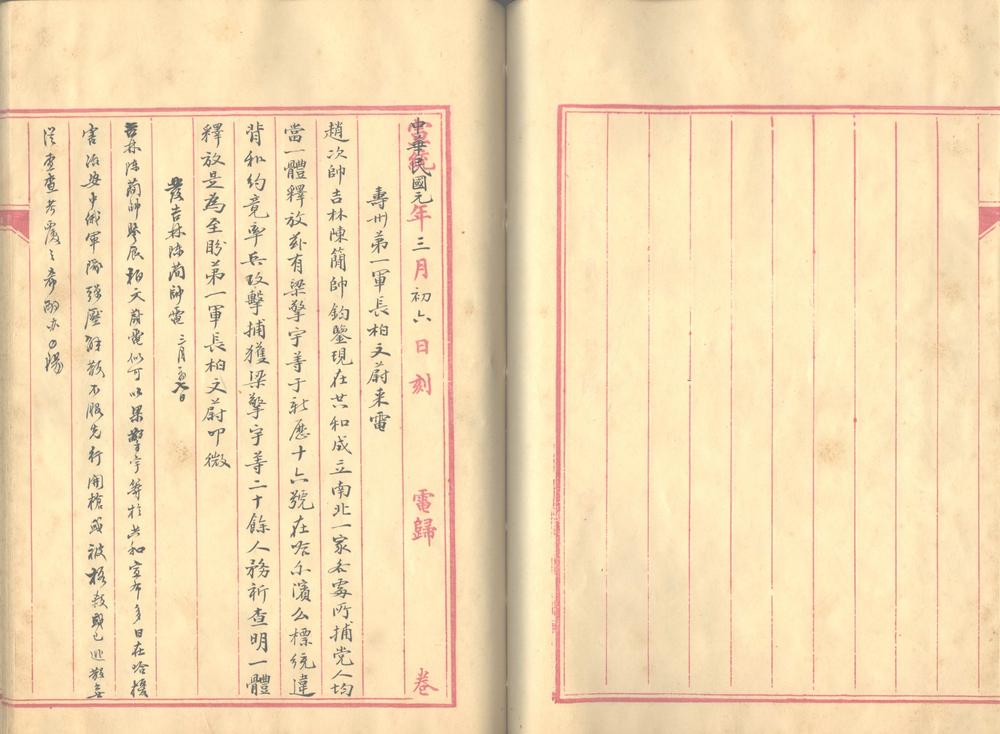 中華民國元年三月初六日刻 電歸 卷
壽州第一軍長柏文蔚來電
趙次帥吉林陳簡帥鈞鑒現在共和成立南北一家各處所捕党人均
當一體釋放茲有梁擎宇等于新歷十六號在哈尔濱么標統違
背和約竟率兵攻擊捕獲梁擎宇等二十餘人務祈查明一體
釋放是為至盼第一軍長柏文蔚叩微
發吉林陳簡帥電 三月初八日
吉林陳簡帥鑒辰柏文蔚電似可以梁擎宇等於共和宣布多日在哈擾
害治安中俄軍隊強壓解散不服先行開槍或被格殺或已逃散無
從查考覆之希酌办